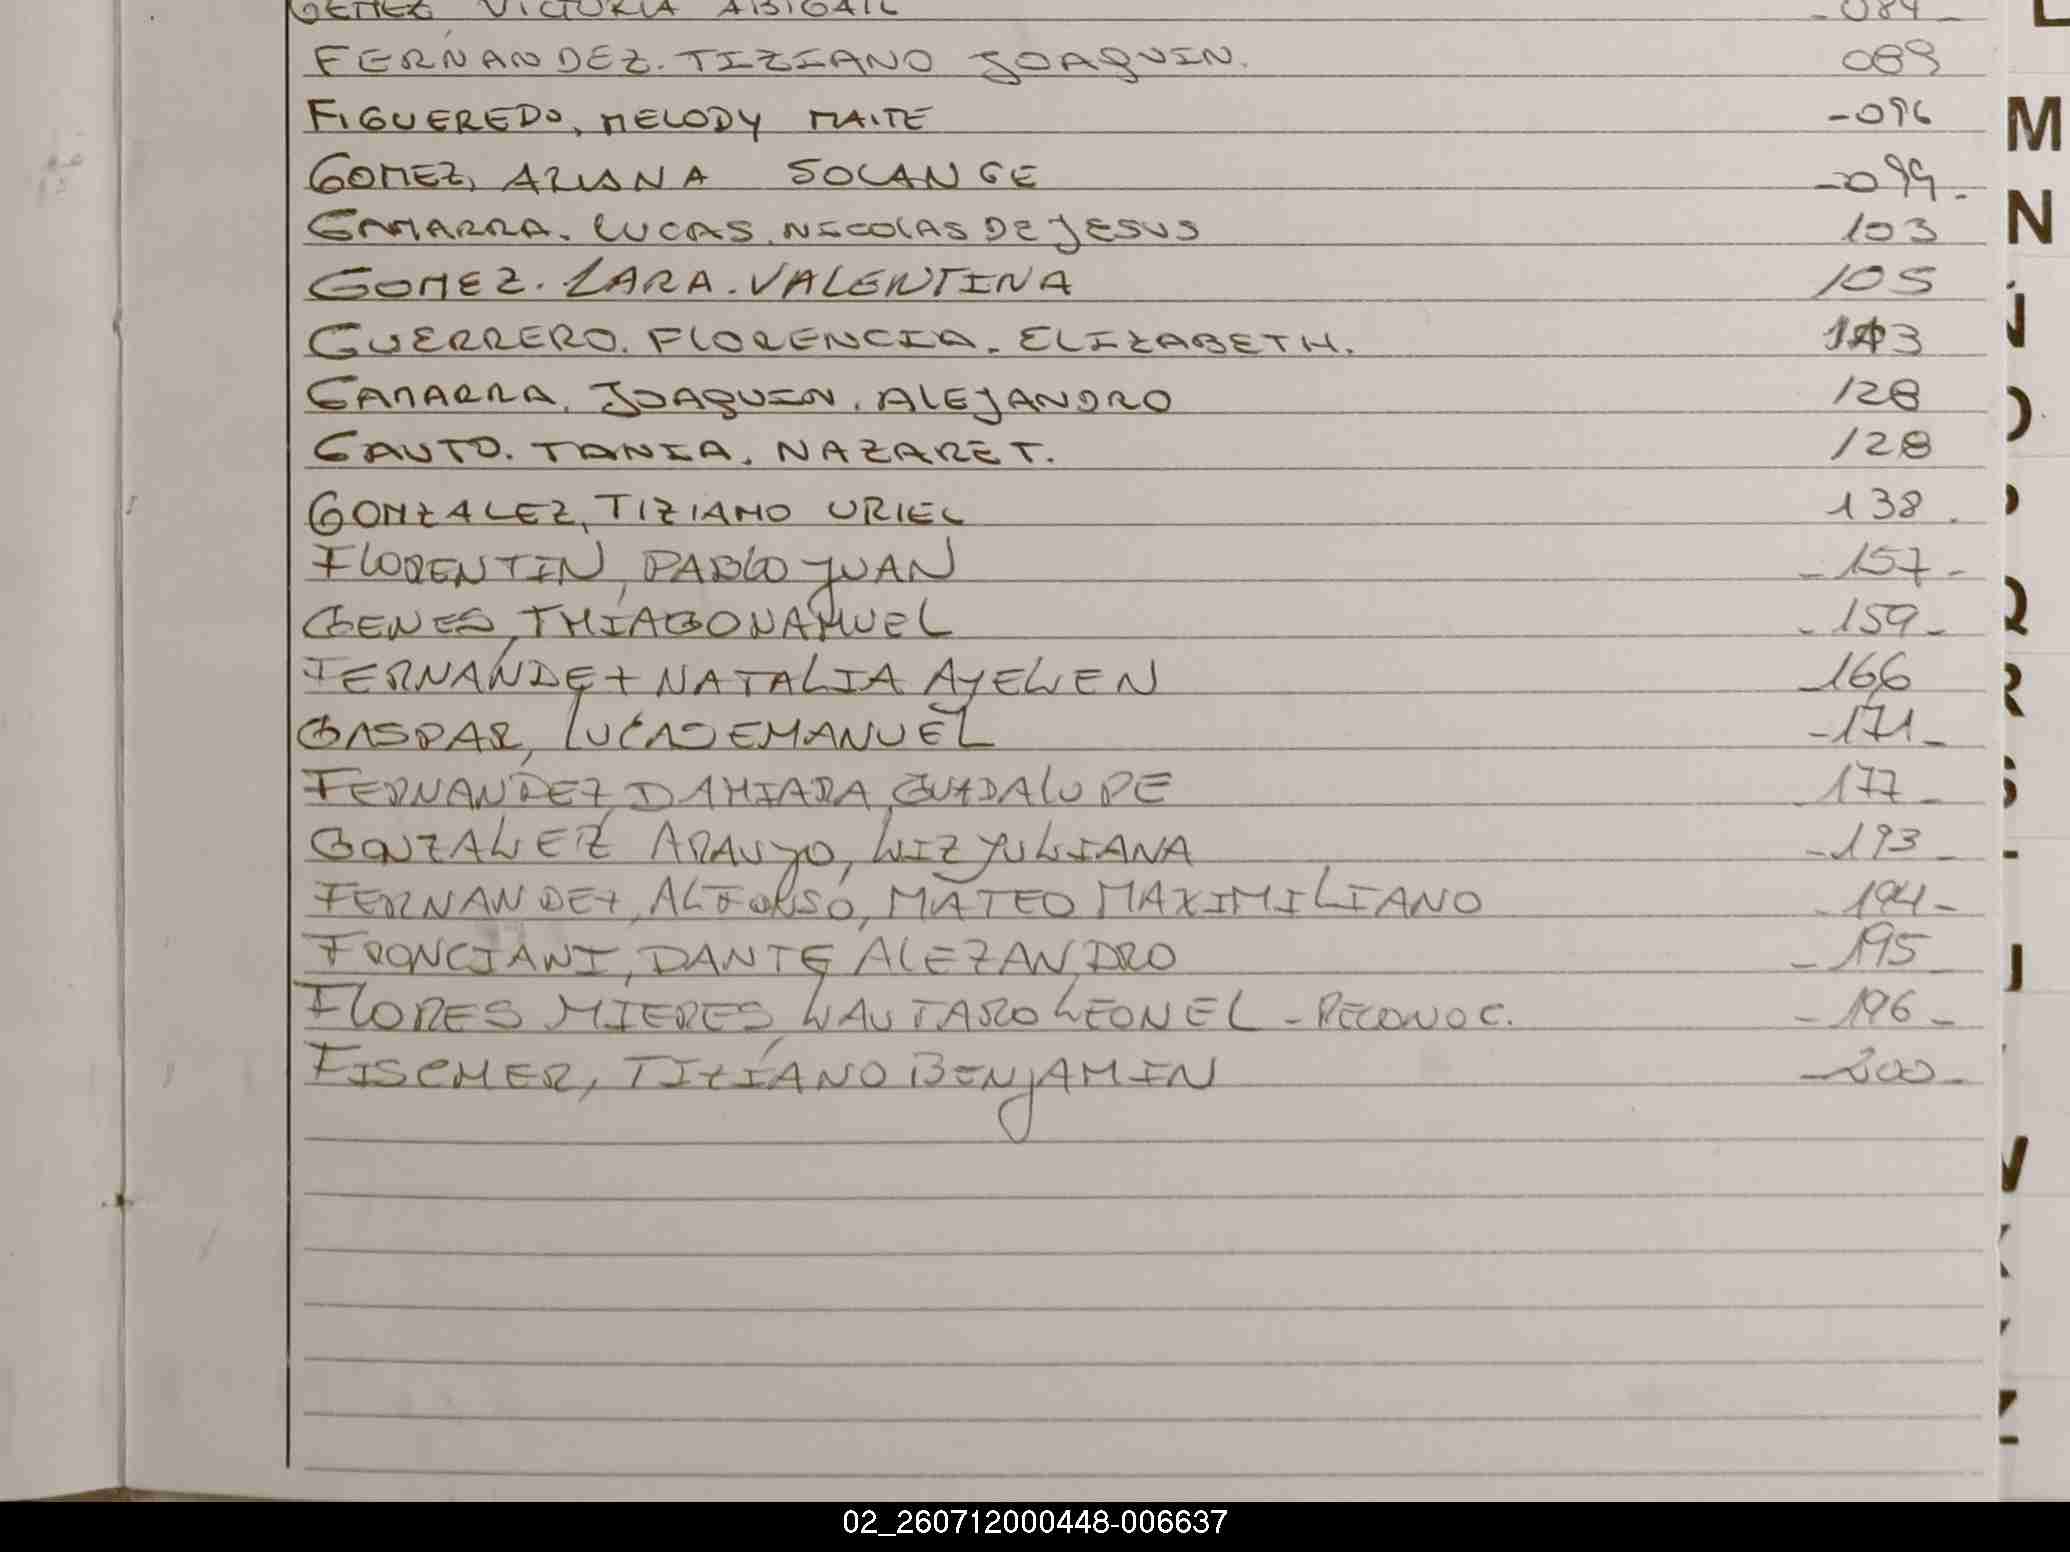 GEMEZ VICTORIA ABIGAIL -084-
FERNANDEZ. TIZIANO JOAQUIN. 089
FIGUEREDO, MELODY MAITE -096
GOMEZ, ARIANA SOLANGE -099-
GAMARRA. LUCAS. NICOLAS DE JESUS 103
GOMEZ. LARA. VALENTINA 105
GUERRERO. FLORENCIA. ELIZABETH. 113
GAMARRA. JOAQUIN. ALEJANDRO 128
GAUTO. TANIA. NAZARET. 128
GONZALEZ, TIZIANO URIEL 138.
FLORENTIN, PABLO JUAN -157-
GENES, THIAGO NAHUEL -159-
FERNANDEZ NATALIA AYELEN -166
GASPAR, LUCAS EMANUEL -171-
FERNANDEZ, DAMIARA, GUADALUPE -177-
GONZALEZ ARAUJO, LIZ YULIANA -193-
FERNANDEZ, ALFONSO, MATEO MAXIMILIANO -194-
FRONCIANI, DANTE ALEZANDRO -195-
FLORES MIERES, LAUTARO LEONEL - RECONOC. -196-
FISCHER, TIZIANO BENJAMIN -200-
L
M
N
Ñ
O
P
Q
R
S
T
U
V
X
Y
Z
02_260712000448-006637